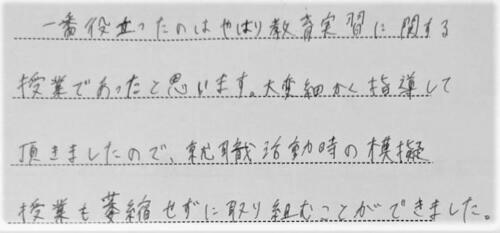 一番役立ったのはやはり教育実習に関する
授業であったと思います。大変細かく指導して
頂きましたので、就職活動時の模擬
授業も萎縮せずに取り組むことができました。